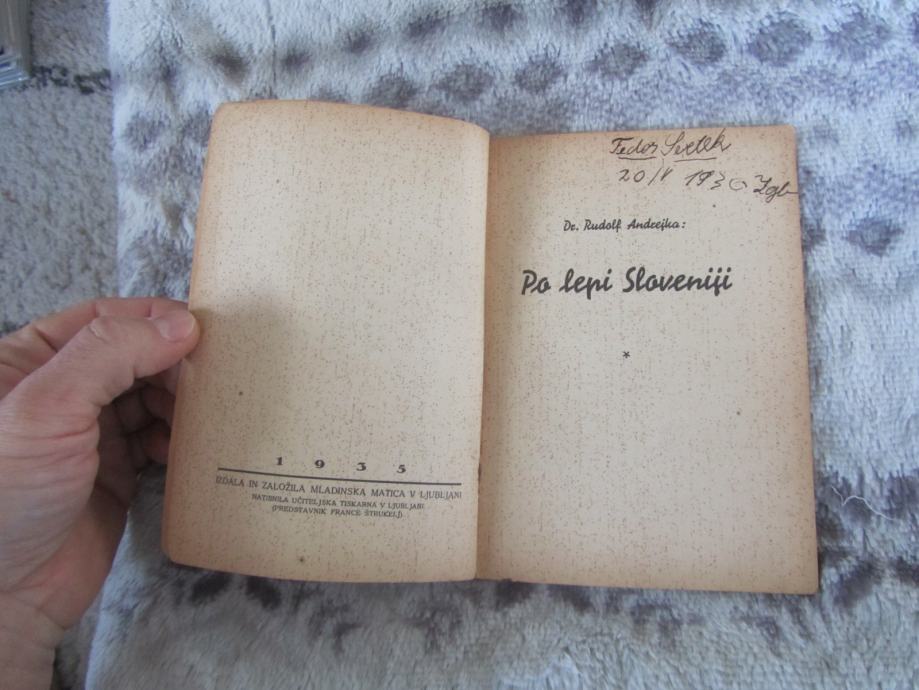 1 9 3 5
IZDALA IN ZALOŽILA MLADINSKA MATICA V LJUBLJANI
NATISNILA UČITELJSKA TISKARNA V LJUBLJANI
(PREDSTAVNIK FRANCÈ ŠTRUKELJ)
Fedor Svetek
20/V 1936 Zgb
Dr. Rudolf Andrejka:
Po lepi Sloveniji
*